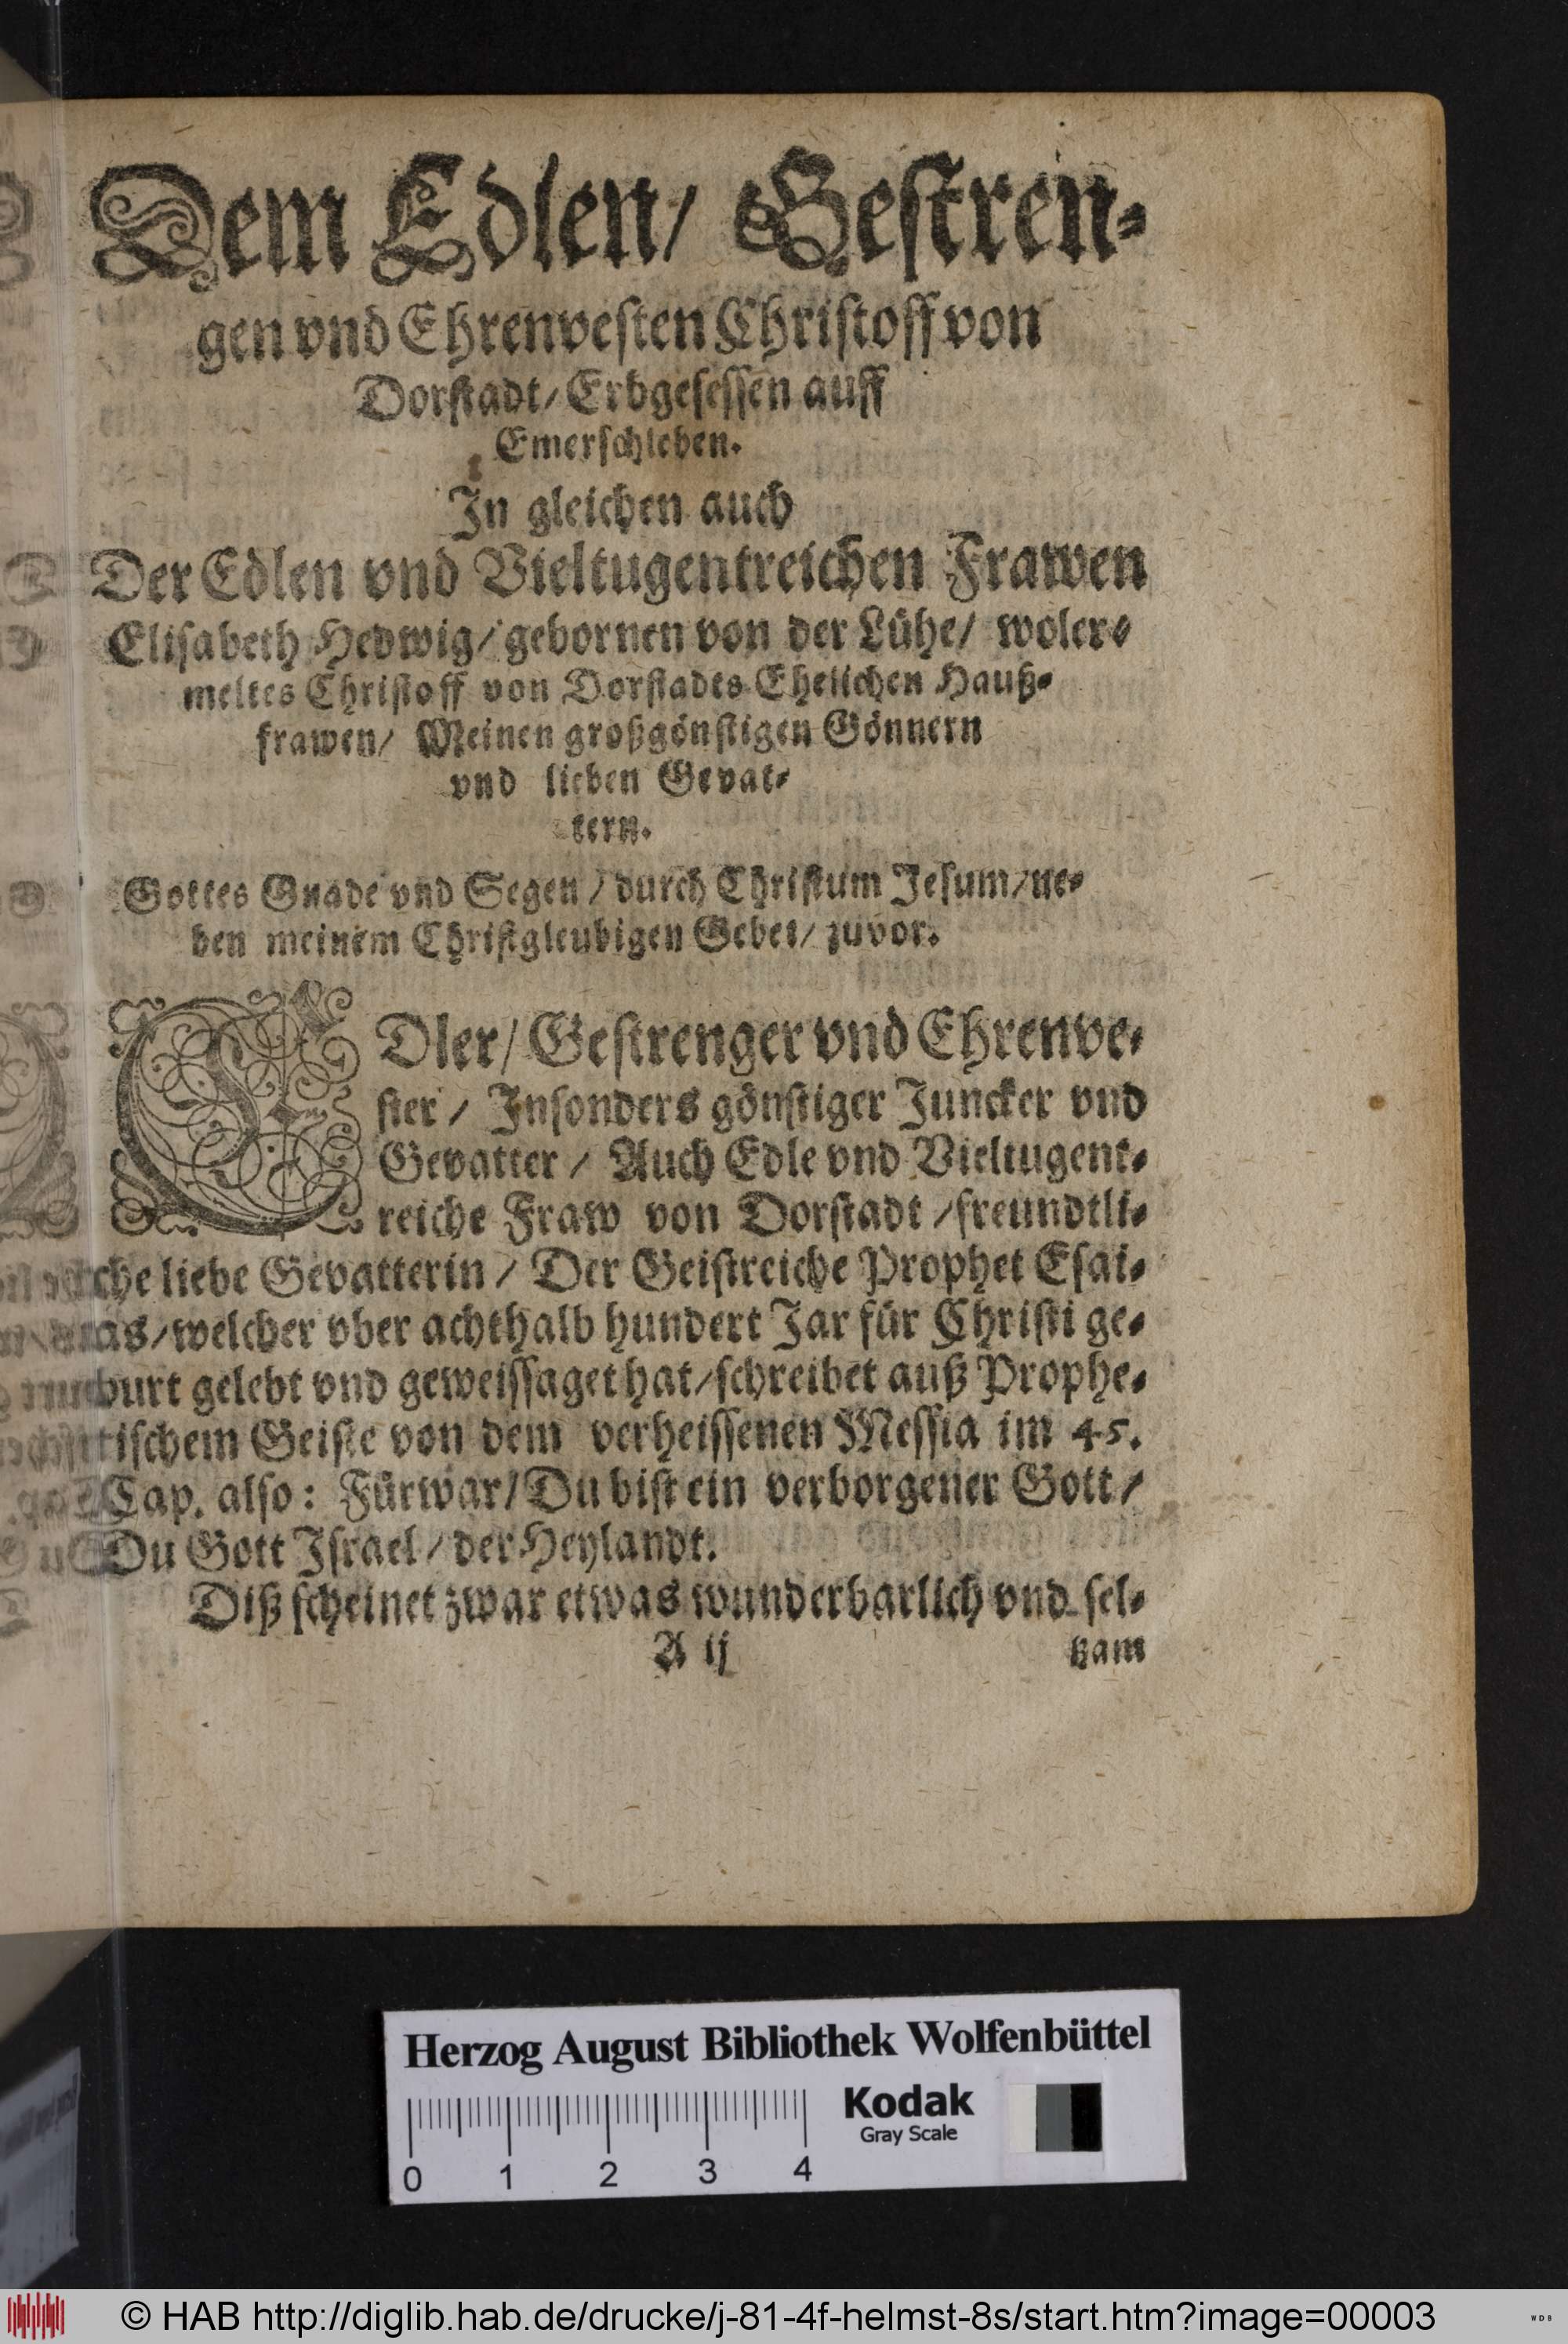 Dem Edlen/ Gestren-
gen vnd Ehrenvesten Christoff von
Dorstadt/ Erbgesessen auff
Emerschleben.
In gleichen auch
Der Edlen vnd Vieltugentreichen Frawen
Elisabeth Hedwig/ gebornen von der Lühe/ woler-
meltes Christoff von Dorstadts Ehelichen Hauß-
frawen/ Meinen großgönstigen Gönnern
vnd lieben Gevat-
tern.
Gottes Gnade vnd Segen/ durch Christum Jesum/ ne-
ben meinem Christgleubigen Gebet/ zuvor.
EDler/ Gestrenger vnd Ehrenve-
ster/ Insonders gönstiger Juncker vnd
Gevatter/ Auch Edle vnd Vieltugent-
reiche Fraw von Dorstadt/ freundtli-
che liebe Gevatterin/ Der Geistreiche Prophet Esai-
as/ welcher vber achthalb hundert Jar für Christi ge-
burt gelebt vnd geweissaget hat/ schreibet auß Prophe-
tischem Geiste von dem verheissenen Messia im 45.
Cap. also: Fürwar/ Du bist ein verborgener Gott/
Du Gott Israel/ der Heylandt.
Diß scheinet zwar etwas wunderbarlich vnd sel-
A ij
tzam
Herzog August Bibliothek Wolfenbüttel
Kodak
Gray Scale
0 1 2 3 4
© HAB http://diglib.hab.de/drucke/j-81-4f-helmst-8s/start.htm?image=00003
WDB